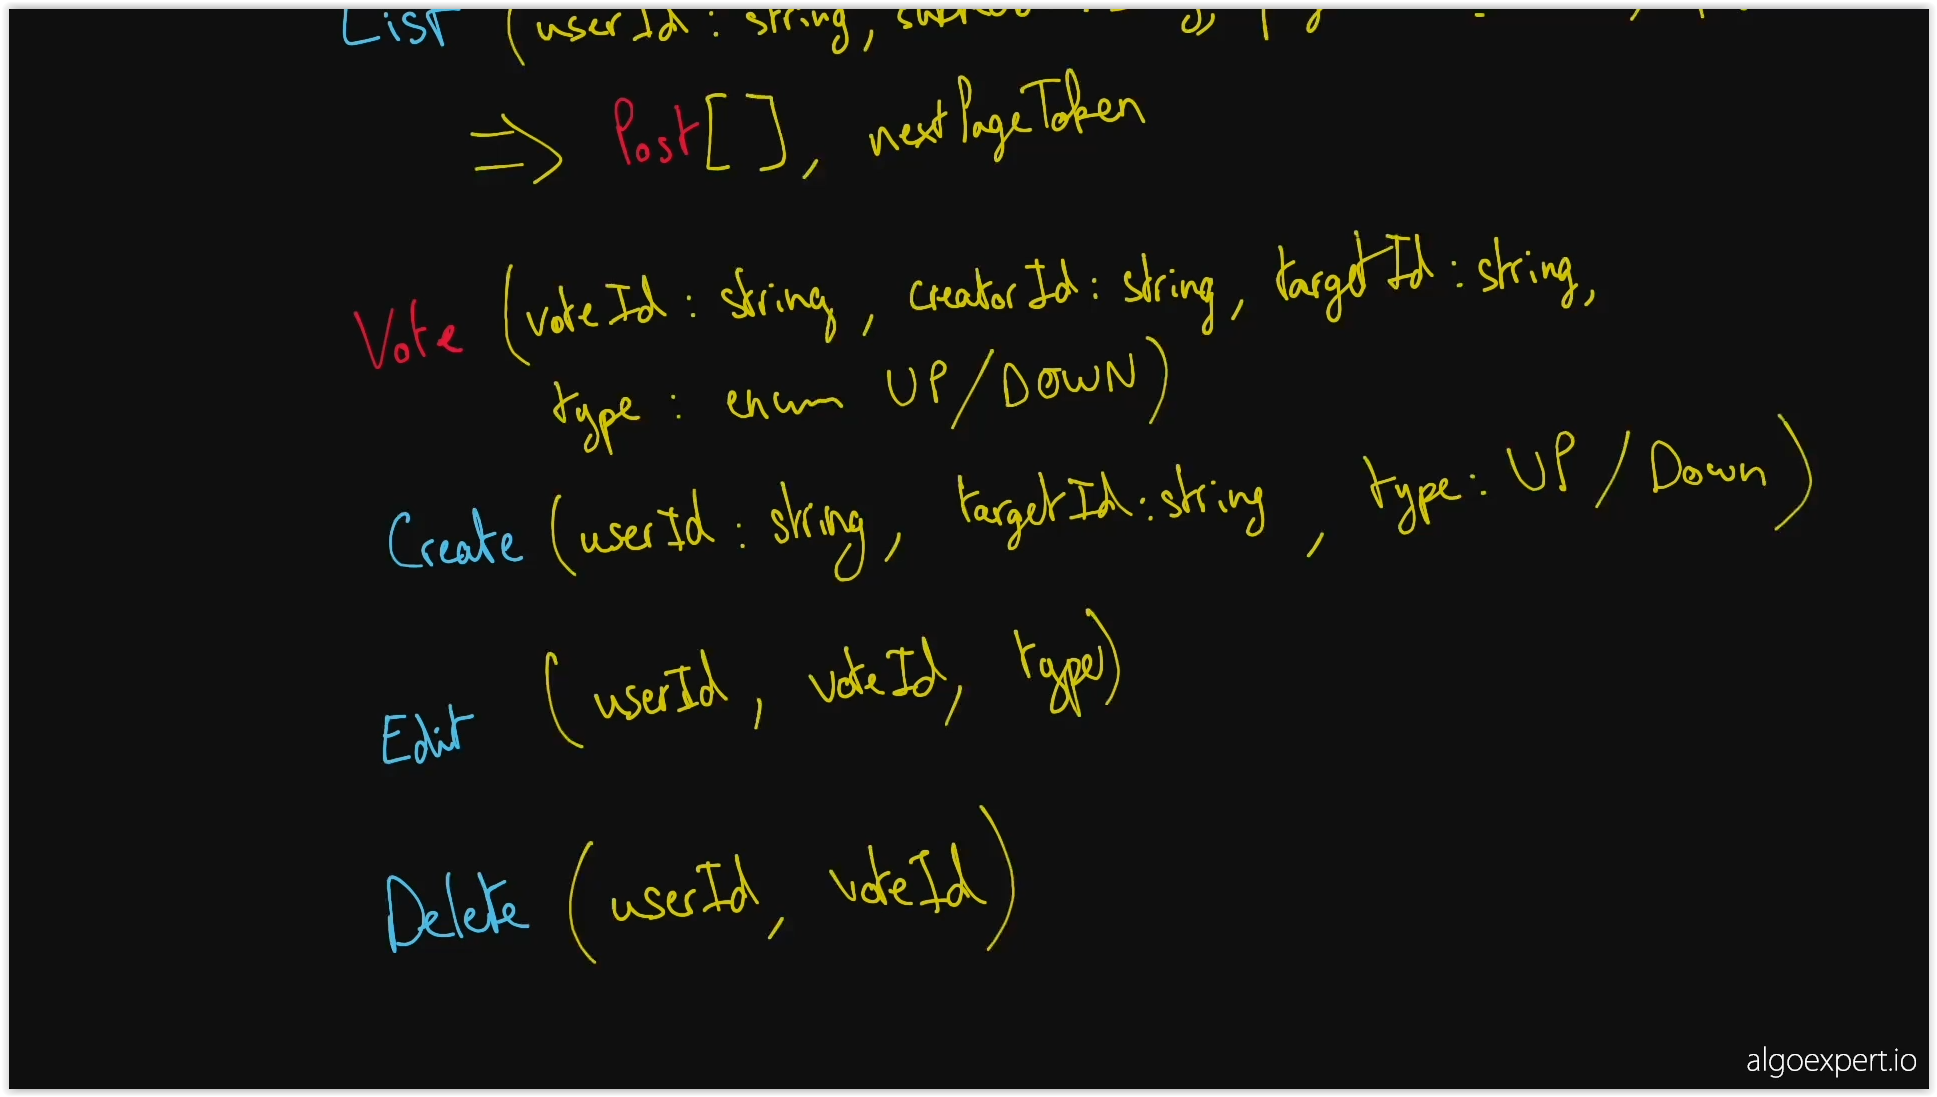 List (userId: string,
⇒ Post[], nextPageToken
Vote (voteId: string, creatorId: string, targetId: string,
type: enum UP/DOWN)
Create (userId: string, targetId: string, type: UP / Down)
Edit (userId, voteId, type)
Delete (userId, voteId)
algoexpert.io